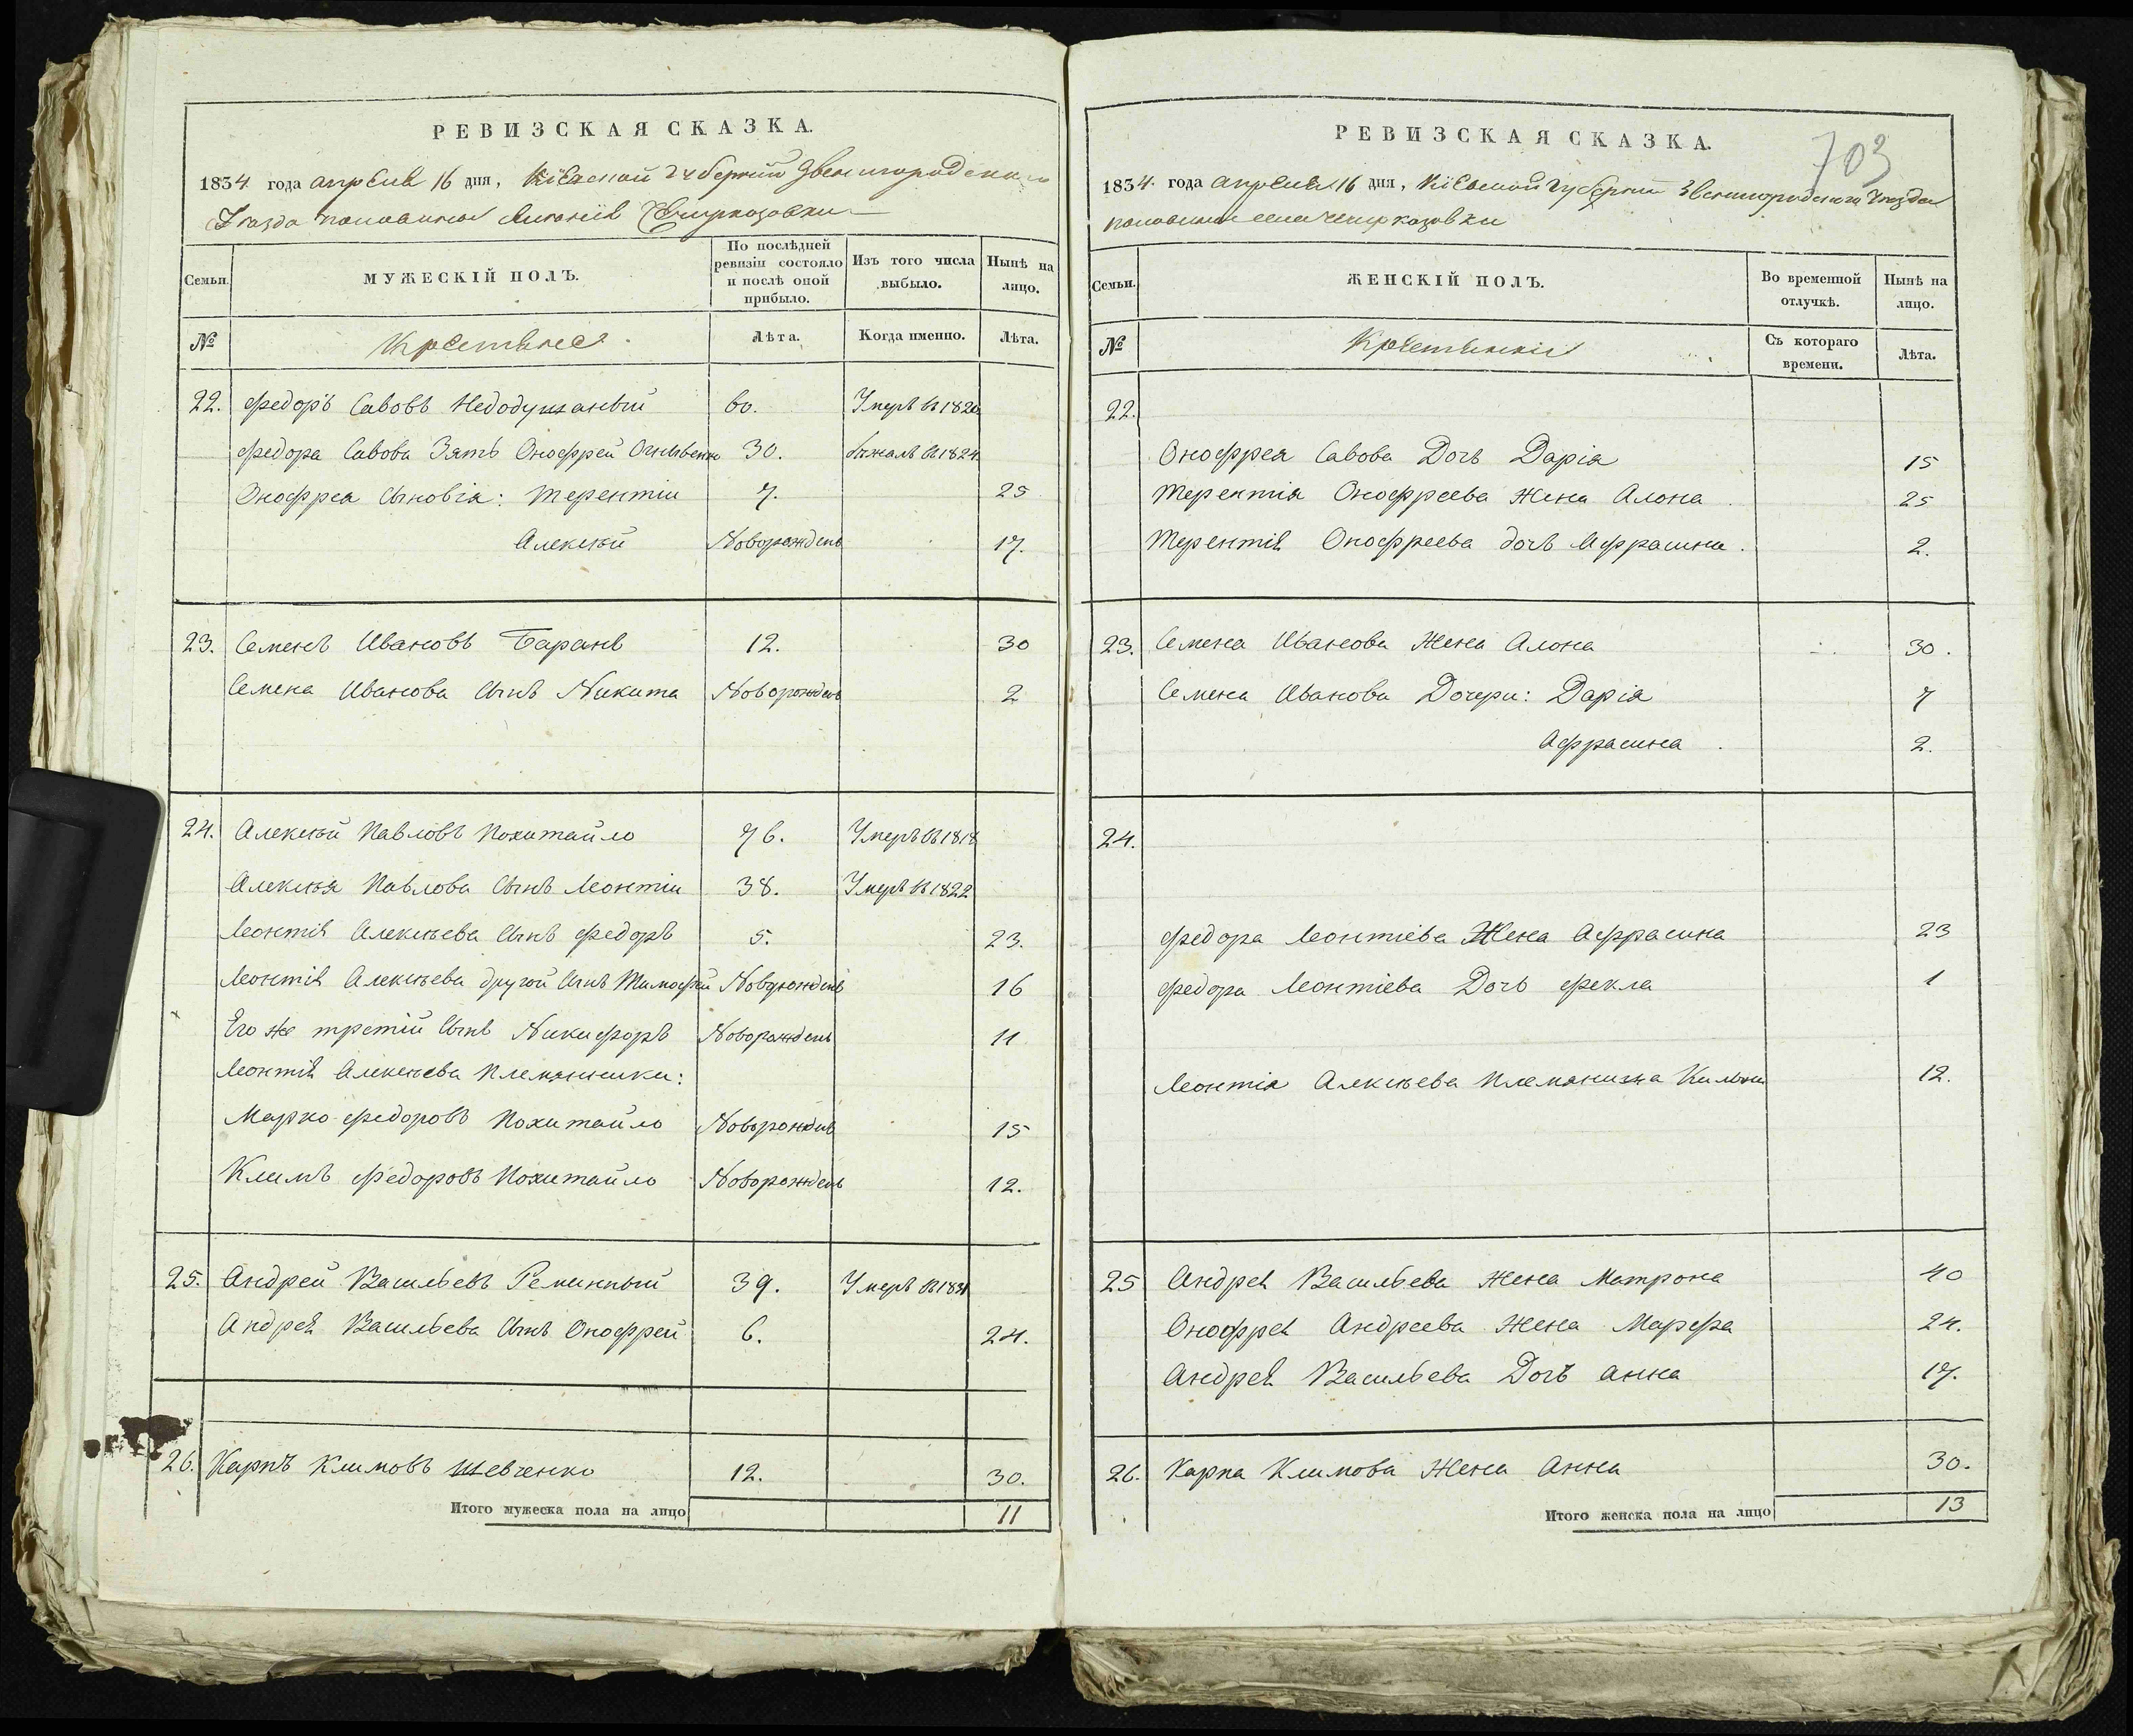 РЕВИЗСКАЯ СКАЗКА.
1834 года апреля 16 дня, Кіевской губерніи Звенигородскаго
Уезда половины
МУЖЕСКІЙ ПОЛЪ.
Семьи.
По послѣдней ревизіи состояло и послѣ оной прибыло.
Изъ того числа выбыло.
Нынѣ на лицо.
№ Крестьяне Лѣта. Когда именно. Лѣта.
22. Федоръ Савовъ Недодушаный 60. Умеръ въ 1820
Федора Савова Зять Онофрей 30. Бѣжалъ въ 1824
Онофрея Сыновія: Терентіи 7. 25
Алексѣй Новорожденъ 17.
23. Семенъ Ивановъ Баранъ 12. 30
Семена Иванова Сынъ Никита Новорожденъ 2
24. Алексѣй Павловъ Похитайло 76. Умеръ въ 1818
Алексѣя Павлова Сынъ Леонтіи 38. Умеръ въ 1822
Леонтія Алексѣева Сынъ Федоръ 5. 23.
Леонтія Алексѣева другой Сынъ Тимофей Новорожденъ 16
Его же третій Сынъ Никифоръ Новорожденъ 11
Леонтія Алексѣева племянники:
Марко Федоровъ Похитайло Новорожденъ 15
Климъ Федоровъ Похитайло Новорожденъ 12.
25. Андрей Васильевъ Ременный 39. Умеръ въ 1831
Андрея Васильева Сынъ Онофрей 6. 24.
26. Карпъ Климовъ Шевченко 12. 30.
Итого мужеска пола на лицо 11
703
РЕВИЗСКАЯ СКАЗКА.
1834 года апреля 16 дня, Кіевской губерніи Звенигородскаго Уезда
половины села
Семьи.
ЖЕНСКІЙ ПОЛЪ.
Во временной отлучкѣ.
Нынѣ на лицо.
№ Крестьянки Съ котораго времени. Лѣта.
22.
Онофрея Савова Дочь Дарія 15
Терентія Онофреева Жена Алона 25
Терентія Онофреева дочь Афрасина 2.
23. Семена Иванова Жена Алона 30.
Семена Иванова Дочери: Дарія 7
Афрасина 2.
24.
Федора Леонтіева Жена Афрасина 23
Федора Леонтіева Дочь Фекла 1
Леонтія Алексѣева племянница 12.
25 Андрея Васильева Жена Матрона 40
Онофрея Андреева Жена Марфа 24.
Андрея Васильева Дочь Анна 17.
26. Карпа Климова Жена Анна 30.
Итого женска пола на лицо 13